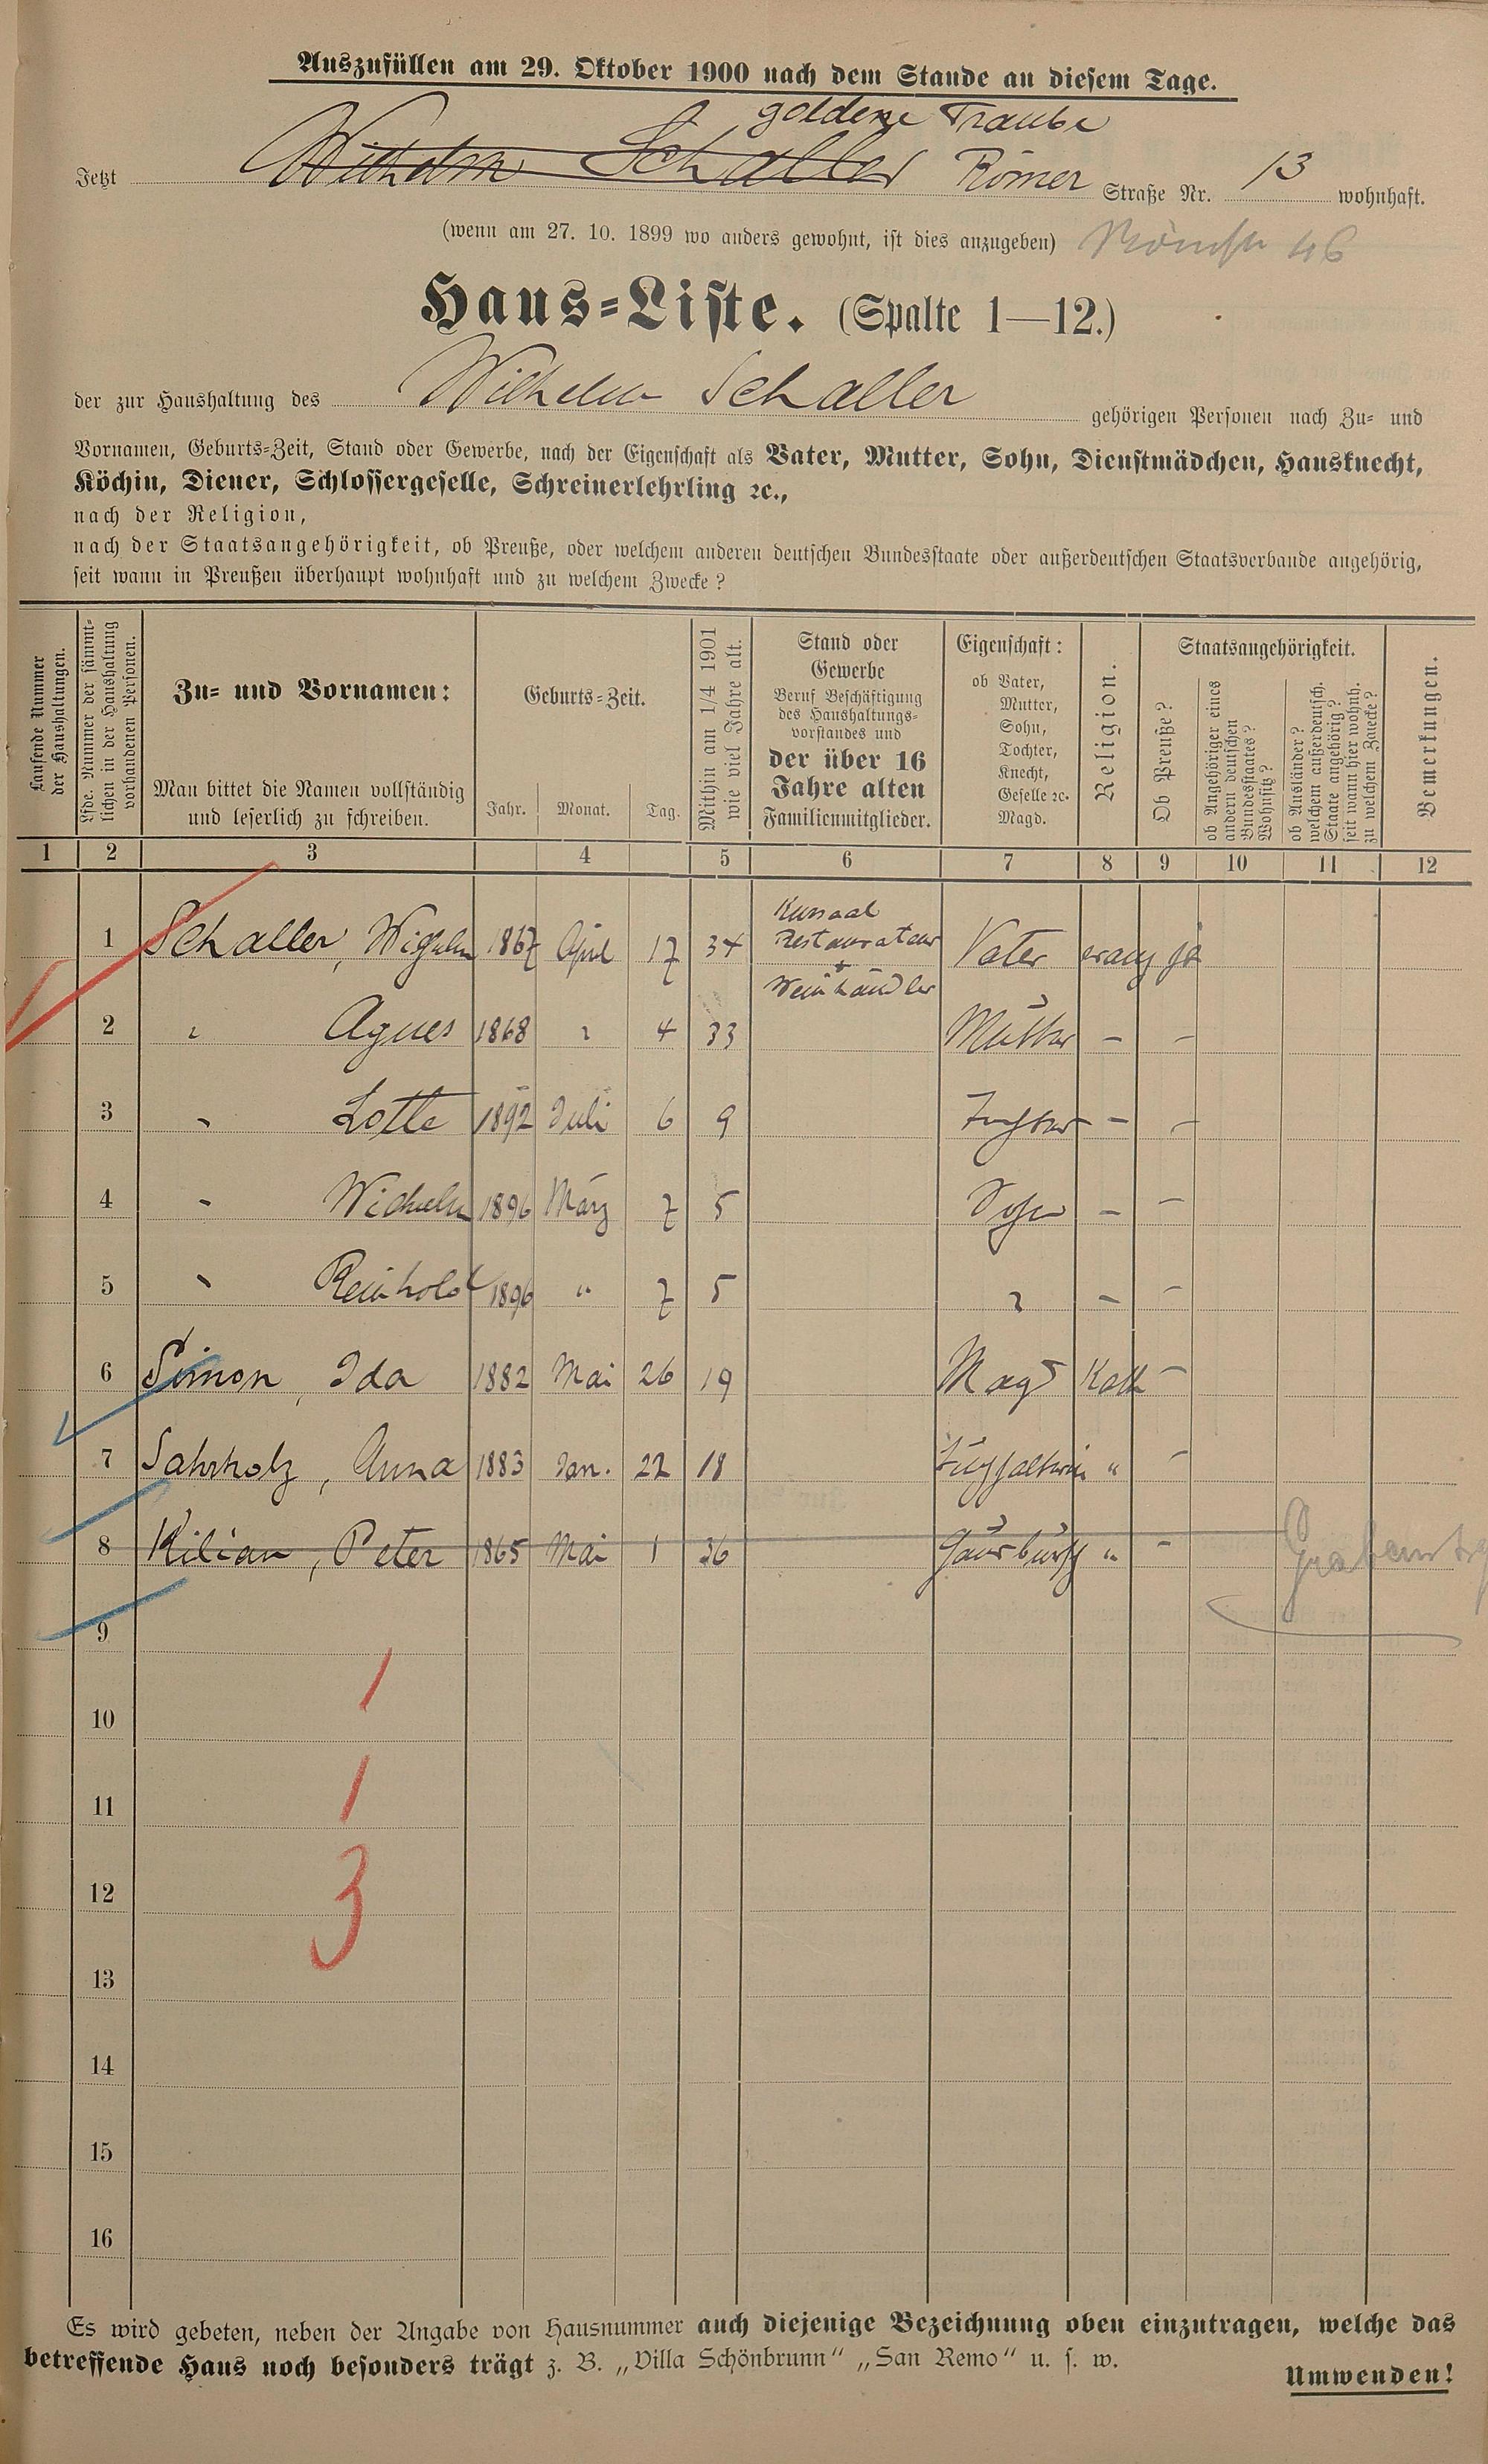 Auszufüllen am 29. Oktober 1900 nach dem Stande an diesem Tage.
goldene Traube
Jetzt Wilhelm Schaller Römer Straße Nr. 13 wohnhaft.
(wenn am 27. 10. 1899 wo anders gewohnt, ist dies anzugeben) Römstr 46
Haus-Liste. (Spalte 1—12.)
der zur Haushaltung des Wilhelm Schaller gehörigen Personen nach Zu- und
Vornamen, Geburts-Zeit, Stand oder Gewerbe, nach der Eigenschaft als Vater, Mutter, Sohn, Dienstmädchen, Hausknecht,
Köchin, Diener, Schlossergeselle, Schreinerlehrling ꝛc.,
nach der Religion,
nach der Staatsangehörigkeit, ob Preuße, oder welchem anderen deutschen Bundesstaate oder außerdeutschen Staatsverbande angehörig,
seit wann in Preußen überhaupt wohnhaft und zu welchem Zwecke?
Laufende Nummer
der Haushaltungen.
Lfde. Nummer der sämmt-
lichen in der Haushaltung
vorhandenen Personen.
Zu- und Vornamen:
Man bittet die Namen vollständig
und leserlich zu schreiben.
Geburts-Zeit.
Jahr. Monat. Tag.
Mithin am 1/4 1901
wie viel Jahre alt.
Stand oder
Gewerbe
Beruf Beschäftigung
des Haushaltungs-
vorstandes und
der über 16
Jahre alten
Familienmitglieder.
Eigenschaft:
ob Vater,
Mutter,
Sohn,
Tochter,
Knecht,
Geselle ꝛc.
Magd.
Religion.
Staatsangehörigkeit.
Ob Preuße?
ob Angehöriger eines
andern deutschen
Bundesstaates?
Wohnsitz?
ob Ausländer?
welchem außerdeutsch.
Staate angehörig?
seit wann hier wohnh.
zu welchem Zwecke?
Bemerkungen.
1 2 3 4 5 6 7 8 9 10 11 12
1 Schaller, Wilhelm 1867 April 17 34 Kursaal Restaurateur + Weinhändler Vater evang ja
2 " Agnes 1868 " 4 33 Mutter - -
3 " Lotte 1892 Juli 6 9 Tochter - -
4 " Wilhelm 1896 März 7 5 Sohn - -
5 " Reinhold 1896 " 7 5 " - -
6 Simon, Ida 1882 Mai 26 19 Magd Kath -
7 Sahrholz, Anna 1883 Jan. 22 18 Haushälterin " -
8 Kilian, Peter 1865 Mai 1 36 Hausbursch " -
9
1
10
1
11
3
12
13
14
15
16
Es wird gebeten, neben der Angabe von Hausnummer auch diejenige Bezeichnung oben einzutragen, welche das
betreffende Haus noch besonders trägt z. B. „Villa Schönbrunn“ „San Remo“ u. s. w.
Umwenden!